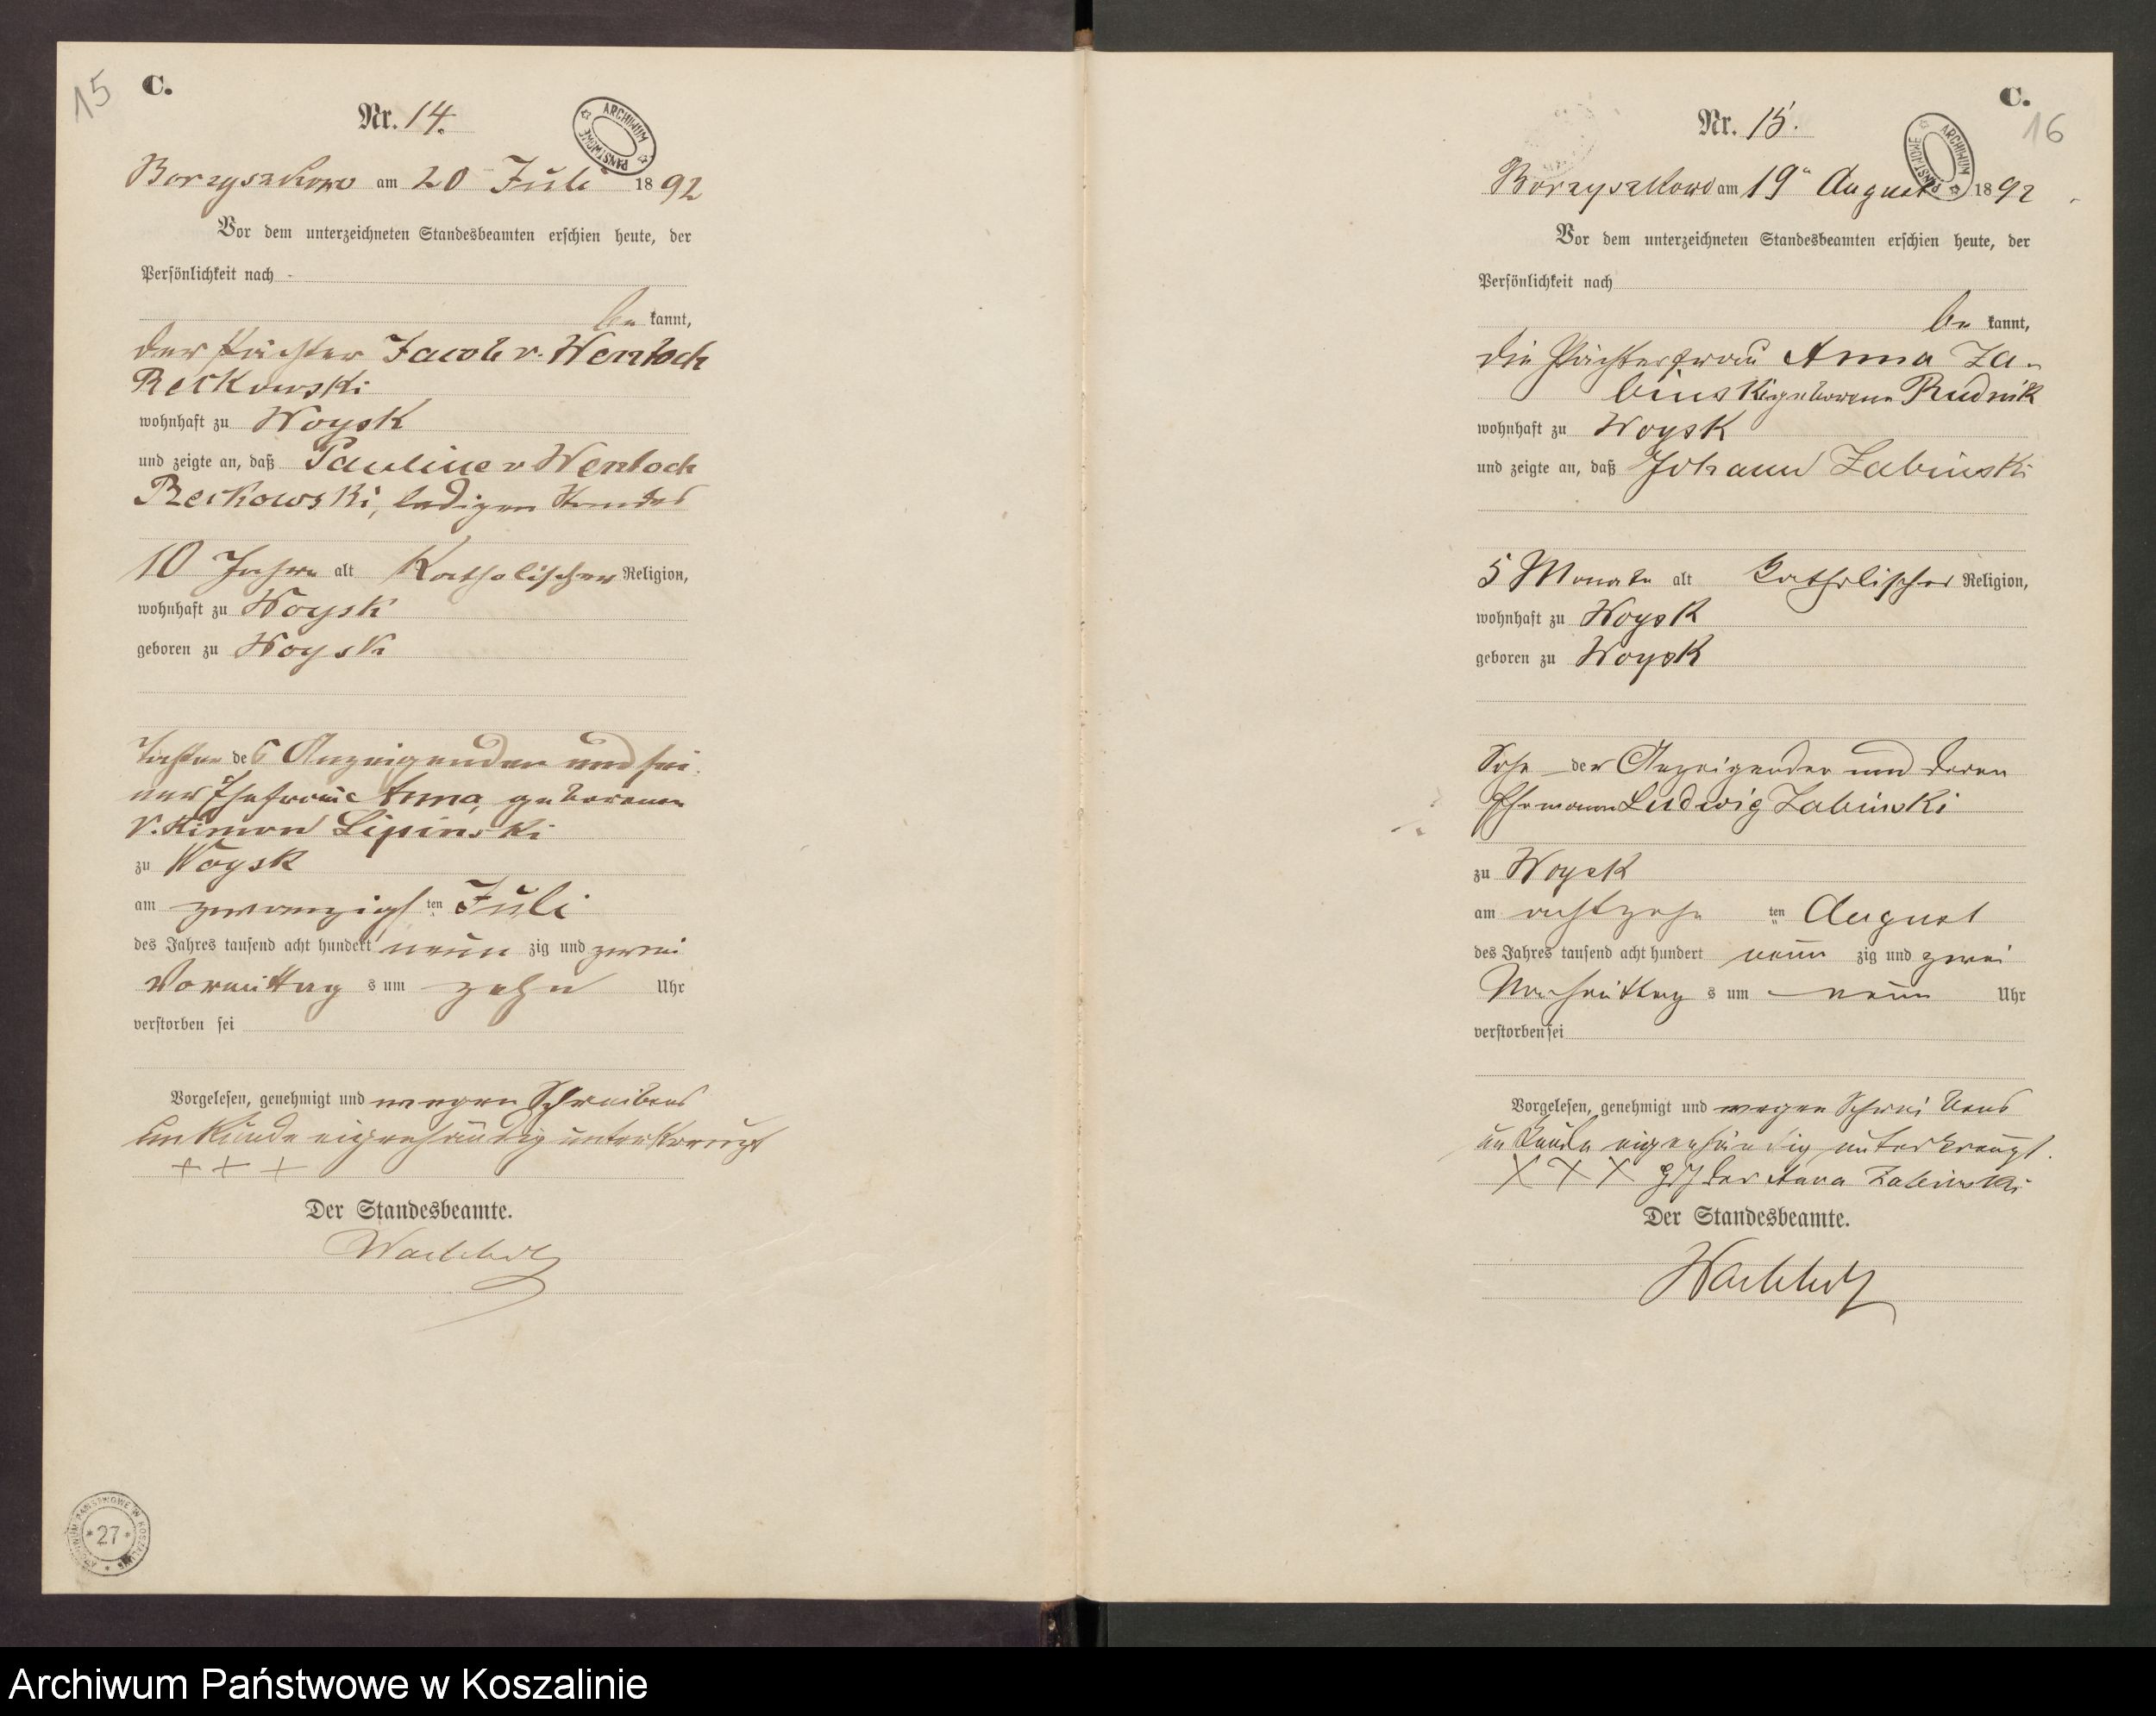 15
C.
Nr. 14.
ARCHIWUM PAŃSTWOWE
Borzyszkowo am 20 Juli 1892
Vor dem unterzeichneten Standesbeamten erschien heute, der
Persönlichkeit nach
be kannt,
der Pächter Jacob v. Wentoch
Reckowski
wohnhaft zu Woysk
und zeigte an, daß Pauline v Wentoch
Reckowski, ledigen Standes
10 Jahre alt Katholischer Religion,
wohnhaft zu Woysk
geboren zu Woysk
Tochter des Anzeigenden und sei-
ner Ehefrau Anna, geborenen
v. Lipinski
zu Woysk
am zwanzigsten Juli
des Jahres tausend acht hundert neun zig und zwei
Vormittag s um zehn Uhr
verstorben sei
Vorgelesen, genehmigt und wegen Schreibens
unkunde eigenhändig unterkreuzt
+ + +
Der Standesbeamte.
ARCHIWUM PAŃSTWOWE W KOSZALINIE
* 27 *
C.
16
Nr. 15.
ARCHIWUM PAŃSTWOWE
Borzyszkowo am 19n August 1892
Vor dem unterzeichneten Standesbeamten erschien heute, der
Persönlichkeit nach
be kannt,
die Pächterfrau Anna Za-
binski geborene Rudnik
wohnhaft zu Woysk
und zeigte an, daß Johann Zabinski
5 Monate alt Katholischer Religion,
wohnhaft zu Woysk
geboren zu Woysk
Sohn der Anzeigenden und deren
Ehemann Ludwig Zabinski
zu Woysk
am achtzehn ten August
des Jahres tausend acht hundert neun zig und zwei
Nachmittag s um neun Uhr
verstorben sei
Vorgelesen, genehmigt und wegen Schreibens
unkunde eigenhändig unterkreuzt.
X X X der Anna Zabinski
Der Standesbeamte.
Archiwum Państwowe w Koszalinie